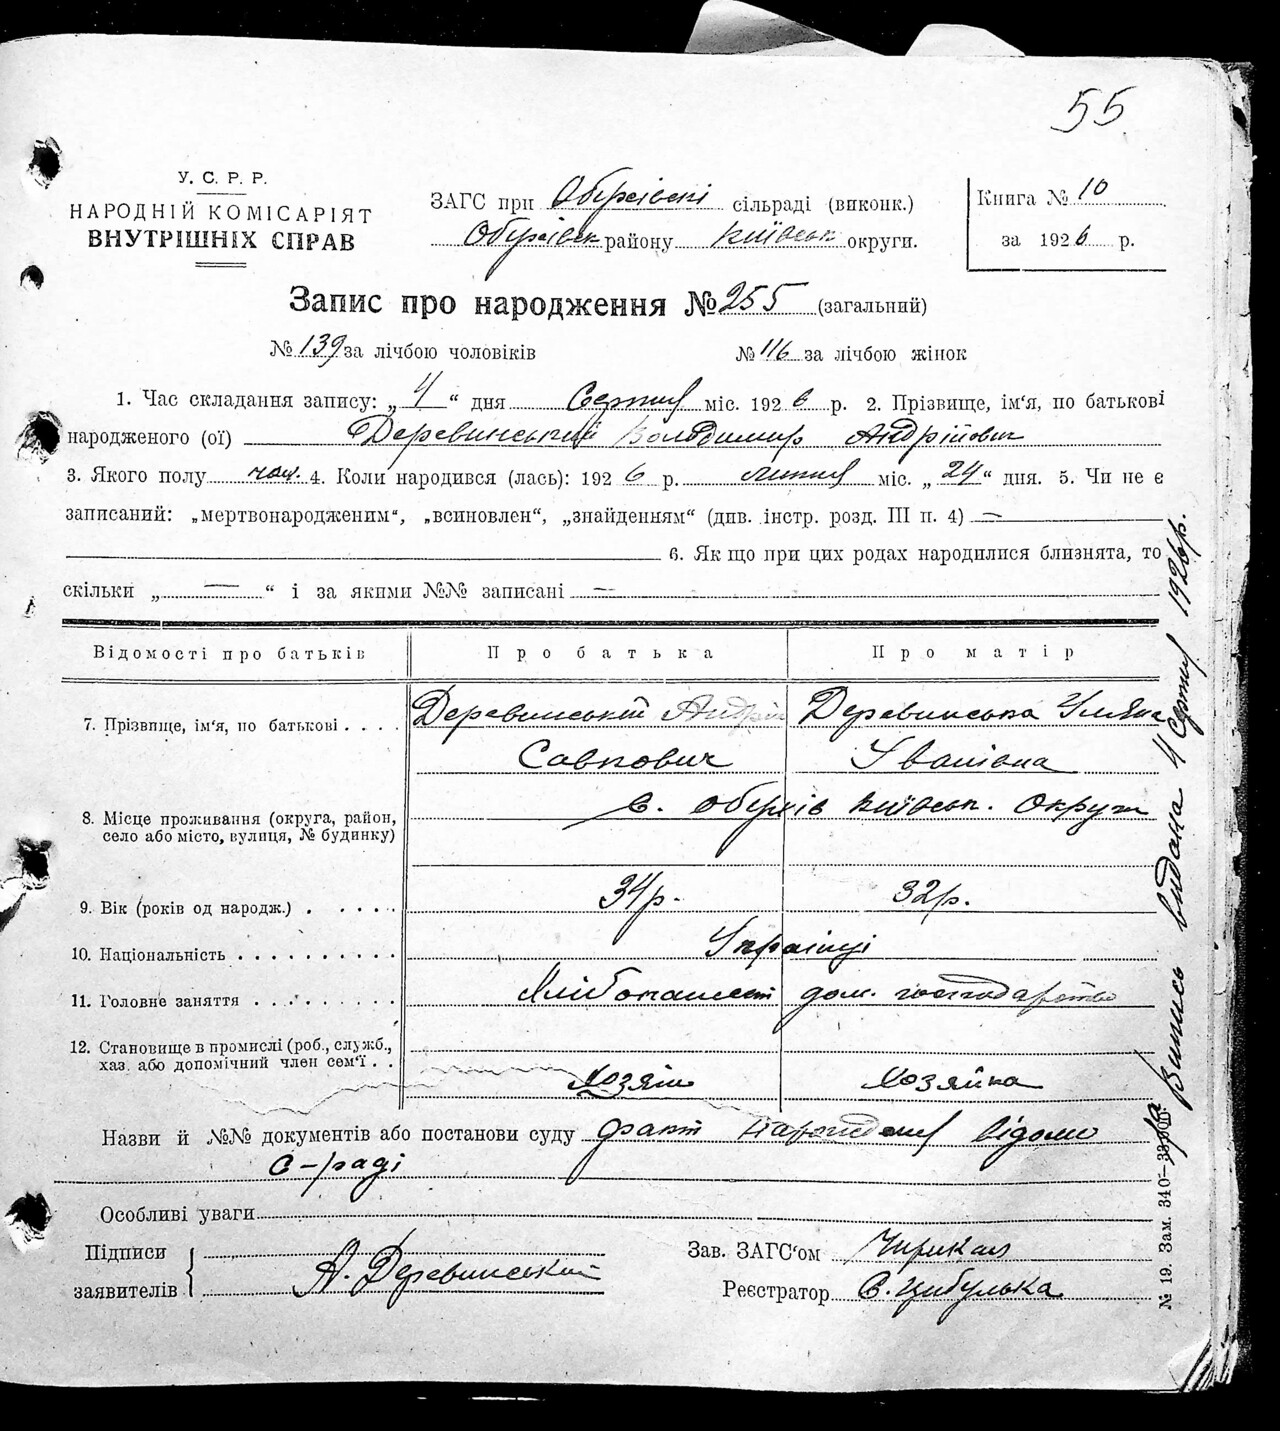 55
У. С. Р. Р.
НАРОДНІЙ КОМІСАРІЯТ
ВНУТРІШНІХ СПРАВ
ЗАГС при Обухівскі сільраді (виконк.)
Обухівськ району Київськ округи.
Книга № 10
за 1926 р.
Запис про народження № 255 (загальний)
№ 139 за лічбою чоловіків № 116 за лічбою жінок
1. Час складання запису: „4“ дня Серпня міс. 1926 р. 2. Прізвище, ім‘я, по батькові
народженого (ої) Деревинський Володимир Андрійович
3. Якого полу чол. 4. Коли народився (лась): 1926 р. липня міс. „24“ дня. 5. Чи не є
записаний: „мертвонародженим“, „всиновлен“, „знайденням“ (див. інстр. розд. III п. 4) —
6. Як що при цих родах народилися близнята, то
скільки „ — “ і за якими №№ записані —
Відомості про батьків Про батька Про матір
7. Прізвище, ім‘я, по батькові . . . . Деревинський Андрій Деревинська Уляна
Савкович Іванівна
8. Місце проживання (округа, район,
село або місто, вулиця, № будинку)
с. Обухів Київськ. Округи
9. Вік (років од народж.) . . . . . 34р. 32р.
10. Національність . . . . . . . . . . Українці
11. Головне заняття . . . . . . . . Хлібопашест дом. господарство
12. Становище в промислі (роб., служб.,
хаз. або допомічний член сем‘ї . .
Хозяін Хозяйка
Назви й №№ документів або постанови суду факт народження відомо
с-раді
Особливі уваги
Підписи
заявителів
А. Деревинський
Зав. ЗАГС‘ом
Реєстратор С. Цибулька
Випись видана 4 Серпня 1926р.
№ 19. Зам. 340